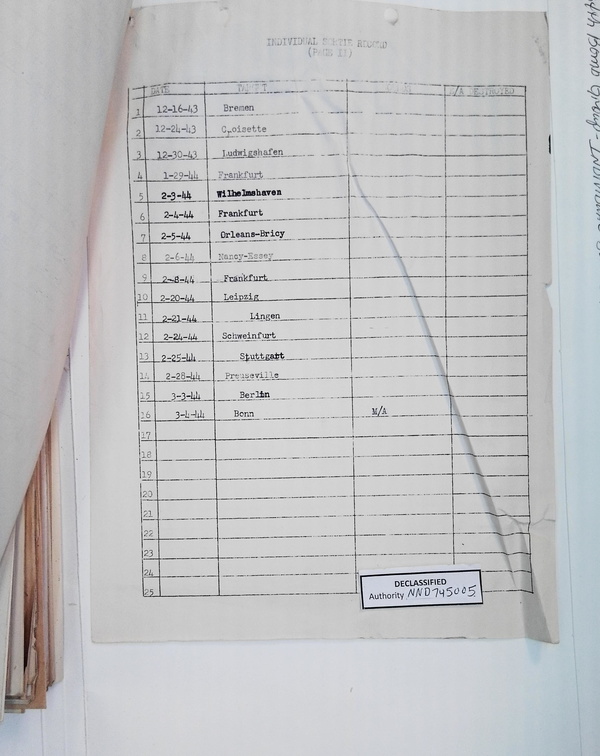 INDIVIDUAL SORTIE RECORD
(PAGE II)
DATE TARGET A/A DESTROYED
1 12-16-43 Bremen
2 12-24-43 Croisette
3 12-30-43 Ludwigshafen
4 1-29-44 Frankfurt
5 2-3-44 Wilhelmshaven
6 2-4-44 Frankfurt
7 2-5-44 Orleans-Bricy
8 2-6-44 Nancy-Essey
9 2-8-44 Frankfurt
10 2-20-44 Leipzig
11 2-21-44 Lingen
12 2-24-44 Schweinfurt
13 2-25-44 Stuttgart
14 2-28-44 Preuseville
15 3-3-44 Berlin
16 3-4-44 Bonn M/A
17
18
19
20
21
22
23
24
25
DECLASSIFIED
Authority NND745005
Bomb Group-